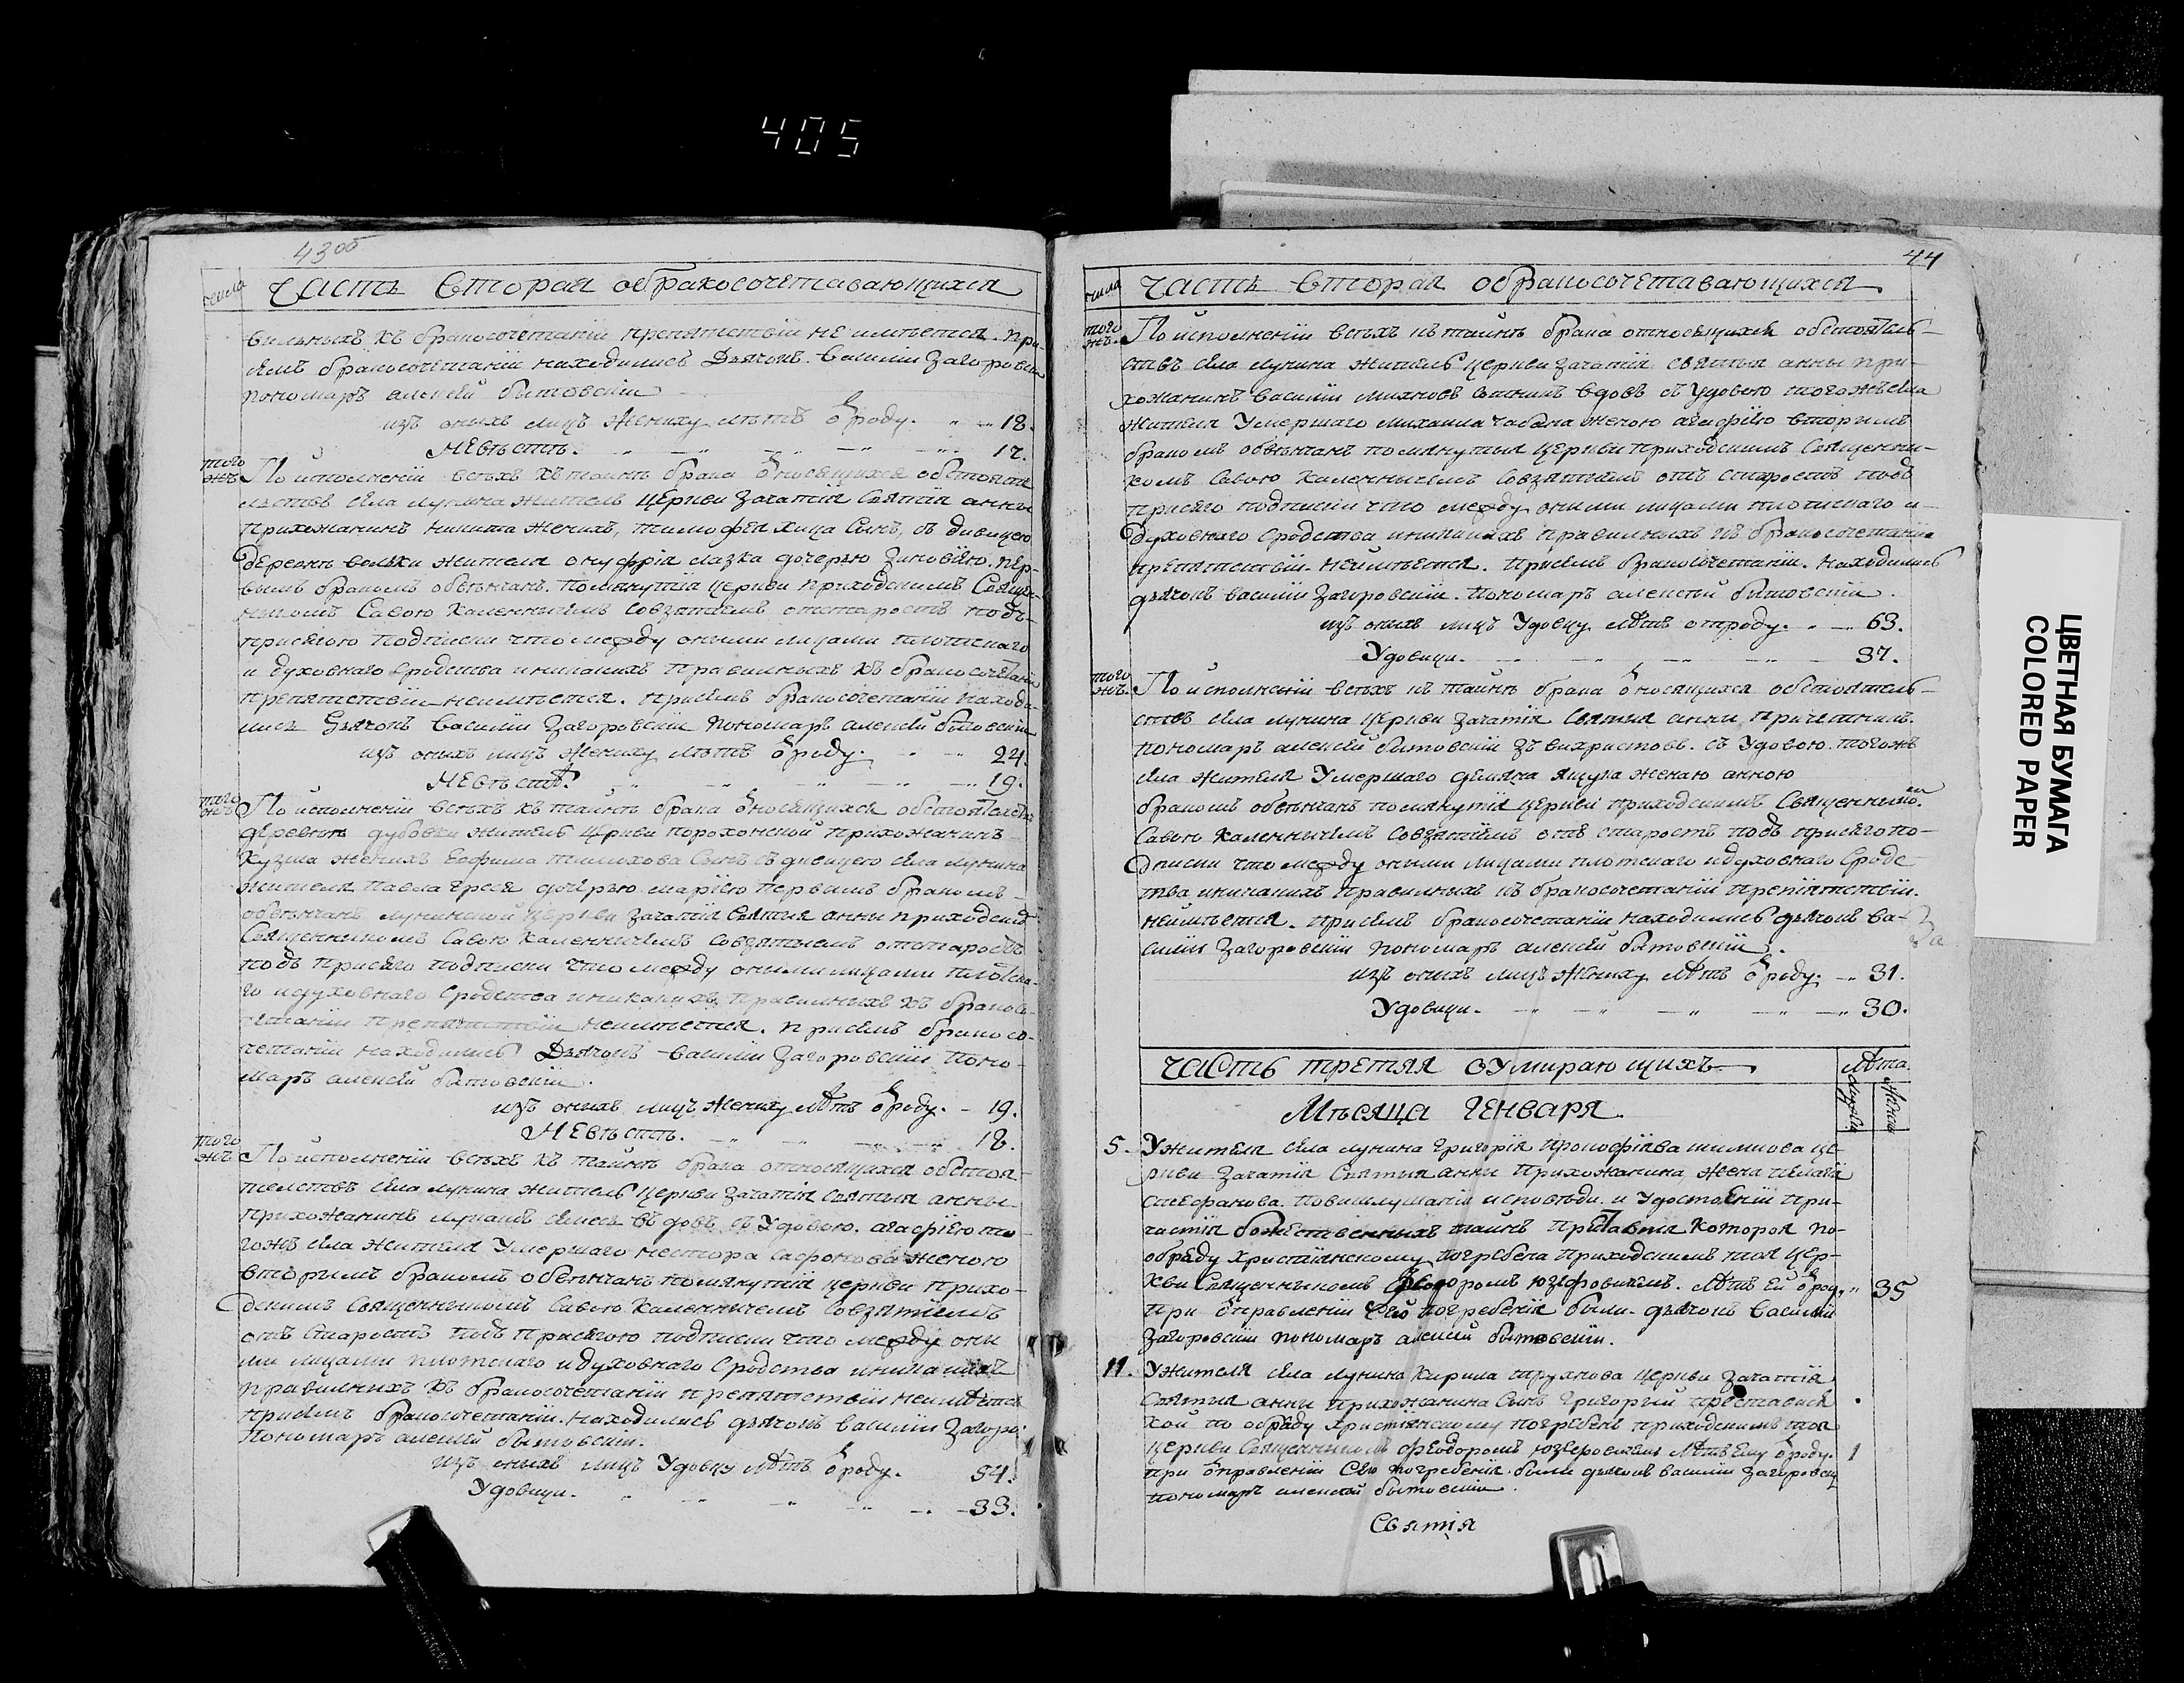 405
43об
числа
Часть вторая о бракосочетавающихся
вильныхъ къ бракосочетанїи препятствїи не имѣется. При
семъ бракосочетанїи находились Дьячокъ Василїи Загоровски
пономарь алексѣй битовскїи
изъ оныхъ лицъ Жениху лѣтъ ѿроду. 18.
Невѣстѣ. 17.
того жъ
По исполненїи всѣхъ къ таинѣ брака ѿносящихся обстояте
льствъ села лунина житель церкви Зачатїя Святїя анны
прихожанинъ никита женихъ, тимофея хица Сынъ, съ дивицею
деревнѣ вельки жителя онуфрїя лазка дочерью Зиновїею. пер-
вымъ бракомъ обвѣнчанъ. помянутїя церкви приходскимъ Священ-
никомъ Савою Каленничемъ совзятиемъ отстаростъ подъ
присягою подписки что между оными лицами плотскаго
и духовнаго сродства иникакихъ правилныхъ къ бракосочетани
препятствїи неимѣется. присемъ бракосочетанїи находи-
лись Дьячокъ Василїи Загоровскїи пономарь алексѣй битовскїи
изъ оныхъ лицъ Жениху лѣтъ ѿроду. 24.
Невѣстѣ. 19.
того жъ
По исполненїи всѣхъ къ таинѣ брака ѿносящихся обстоятелствъ
деревнѣ дубовки житель церкви порохонской прихожанинъ
Кузма женихъ Еофима тимихова Сынъ съ дивицею села лунина
жителя Павла греся дочерью марїею первимъ бракомъ
обвѣнчанъ лунинской церкви зачатїя Святїя анни приходскимъ
Священникомъ Савою Каленничемъ совзятиемъ отстаростъ
подъ присяго подписки что между оними лицами плотска-
го идуховнаго сродства иникакихъ правилныхъ къ бракосо-
четанїи препятствїи неимѣется. присемъ бракосо-
четанїи находились Дьячокъ Василїи Загоровскїи поно-
марь алексѣй битовскїи.
изъ онихъ лицъ жениху лѣтъ ѿроду. 19.
Невѣстѣ. 18.
того жъ
По исполненїи всѣхъ къ таинѣ брака относящихся обстоя-
телствъ села лунина житель церкви Зачатїя Святыя анны
прихожанинъ лукашъ вдовъ съ Удовою. агафїею то-
гожъ села жителя Умершаго нестора сафонова женою
вторимъ бракомъ обвѣнчанъ помянутїя церкви прихо-
дскимъ Священникомъ Савою Каленничемъ совзятїемъ
отъ старостъ подъ присягою подписки что между они
ми лицами плотскаго идуховнаго сродства иникакихъ
правилнихъ къ бракосочетанїи препятствїи неимѣется
присемъ бракосочетанїи находились дьячокъ василїи Загоро:
Пономарь алексѣй битовскїи.
изъ онихъ лицъ Удовцу лѣтъ ѿроду. 54.
Удовици. 33.
44
числа
Часть вторая о бракосочетавающихся
того жъ.
По исполненїи всѣхъ къ таинѣ брака относящихся обстоятель-
ствъ села лунина житель церкви зачатїя святыя анны при-
хожанинъ василїи вдовъ съ Удовою тогожъ села
жителя Умершаго михаила чабана женою агафїею вторимъ
бракомъ обвѣнчанъ помянутыя церкви приходскимъ Священни-
комъ Савою Каленничемъ совзятїемъ отъ старостъ подъ
присяго подписки что между оними лицами плотскаго и
духовнаго сродства иникакихъ правилныхъ къ бракосочетанїи
препятствїи неимѣется. присемъ бракосочетанїи находились
дьячокъ василїи Загоровскїи. пономарь алексѣй битовскїи.
изъ онихъ лицъ Удовцу лѣтъ отроду. 63.
Удовици. 37.
того жъ.
По исполненїи всѣхъ къ таинѣ брака ѿносящихся обстоятель-
ствъ села лунина церкви зачатїя Святыя анни причетникъ.
пономарь алексѣй битовскїи съ Удовою. тогожъ
села жителя Умершаго демяна ящука женаю анною
бракомъ обвѣнчанъ помянутїя церкви приходскимъ Священникомъ
Савою Каленничемъ совзятїемъ отъ старостъ подъ присяго по-
дписки что между оними лицами плотскаго идуховнаго сродс
тва иникакихъ правилнихъ къ бракосочетанїи препятствїи.
неимѣется. присемъ бракосочетанїи находились дьячокъ ва-
силїи Загоровскїи пономарь алексѣй битовскїи.
изъ онихъ лицъ жениху лѣтъ ѿроду. 31.
Удовици. 30.
Часть третяя оумирающихъ
Лѣта.
Мужска
Женска
Мѣсяца Генваря.
5. Ужителя села лунина григорїя прокофїява шимкова це-
ркви Зачатїя Святыя анни прихожанина жена пелагїя
Стефанова. повислушанїи исповѣди. и Удостоенїи при-
частїя божественныхъ таинъ преставися которая по-
обряду христїянскому погребена приходскимъ тоя цер-
кви Священникомъ Феодоромъ юзефовичемъ. лѣтъ ей ѿрод. 35
при ѿправленїи Сего погребенїя были. дьячокъ василїи
Загоровскїи пономарь алексѣй битовскїи.
11. Ужителя села лунина Кирила трухнова церкви Зачатїя
Святыя анни прихожанина Сынъ Григорый преставися
кой по обряду христїянскому погребенъ приходскимъ тоя
церкви Священникомъ Феодоромъ юзефовичемъ лѣтъ Ему ѿроду. 1
при ѿправленїи Сего погребенїя были дьячокъ василїи загоровски
пономарь алексѣй битовскїи.
Святїя
ЦВЕТНАЯ БУМАГА
COLORED PAPER